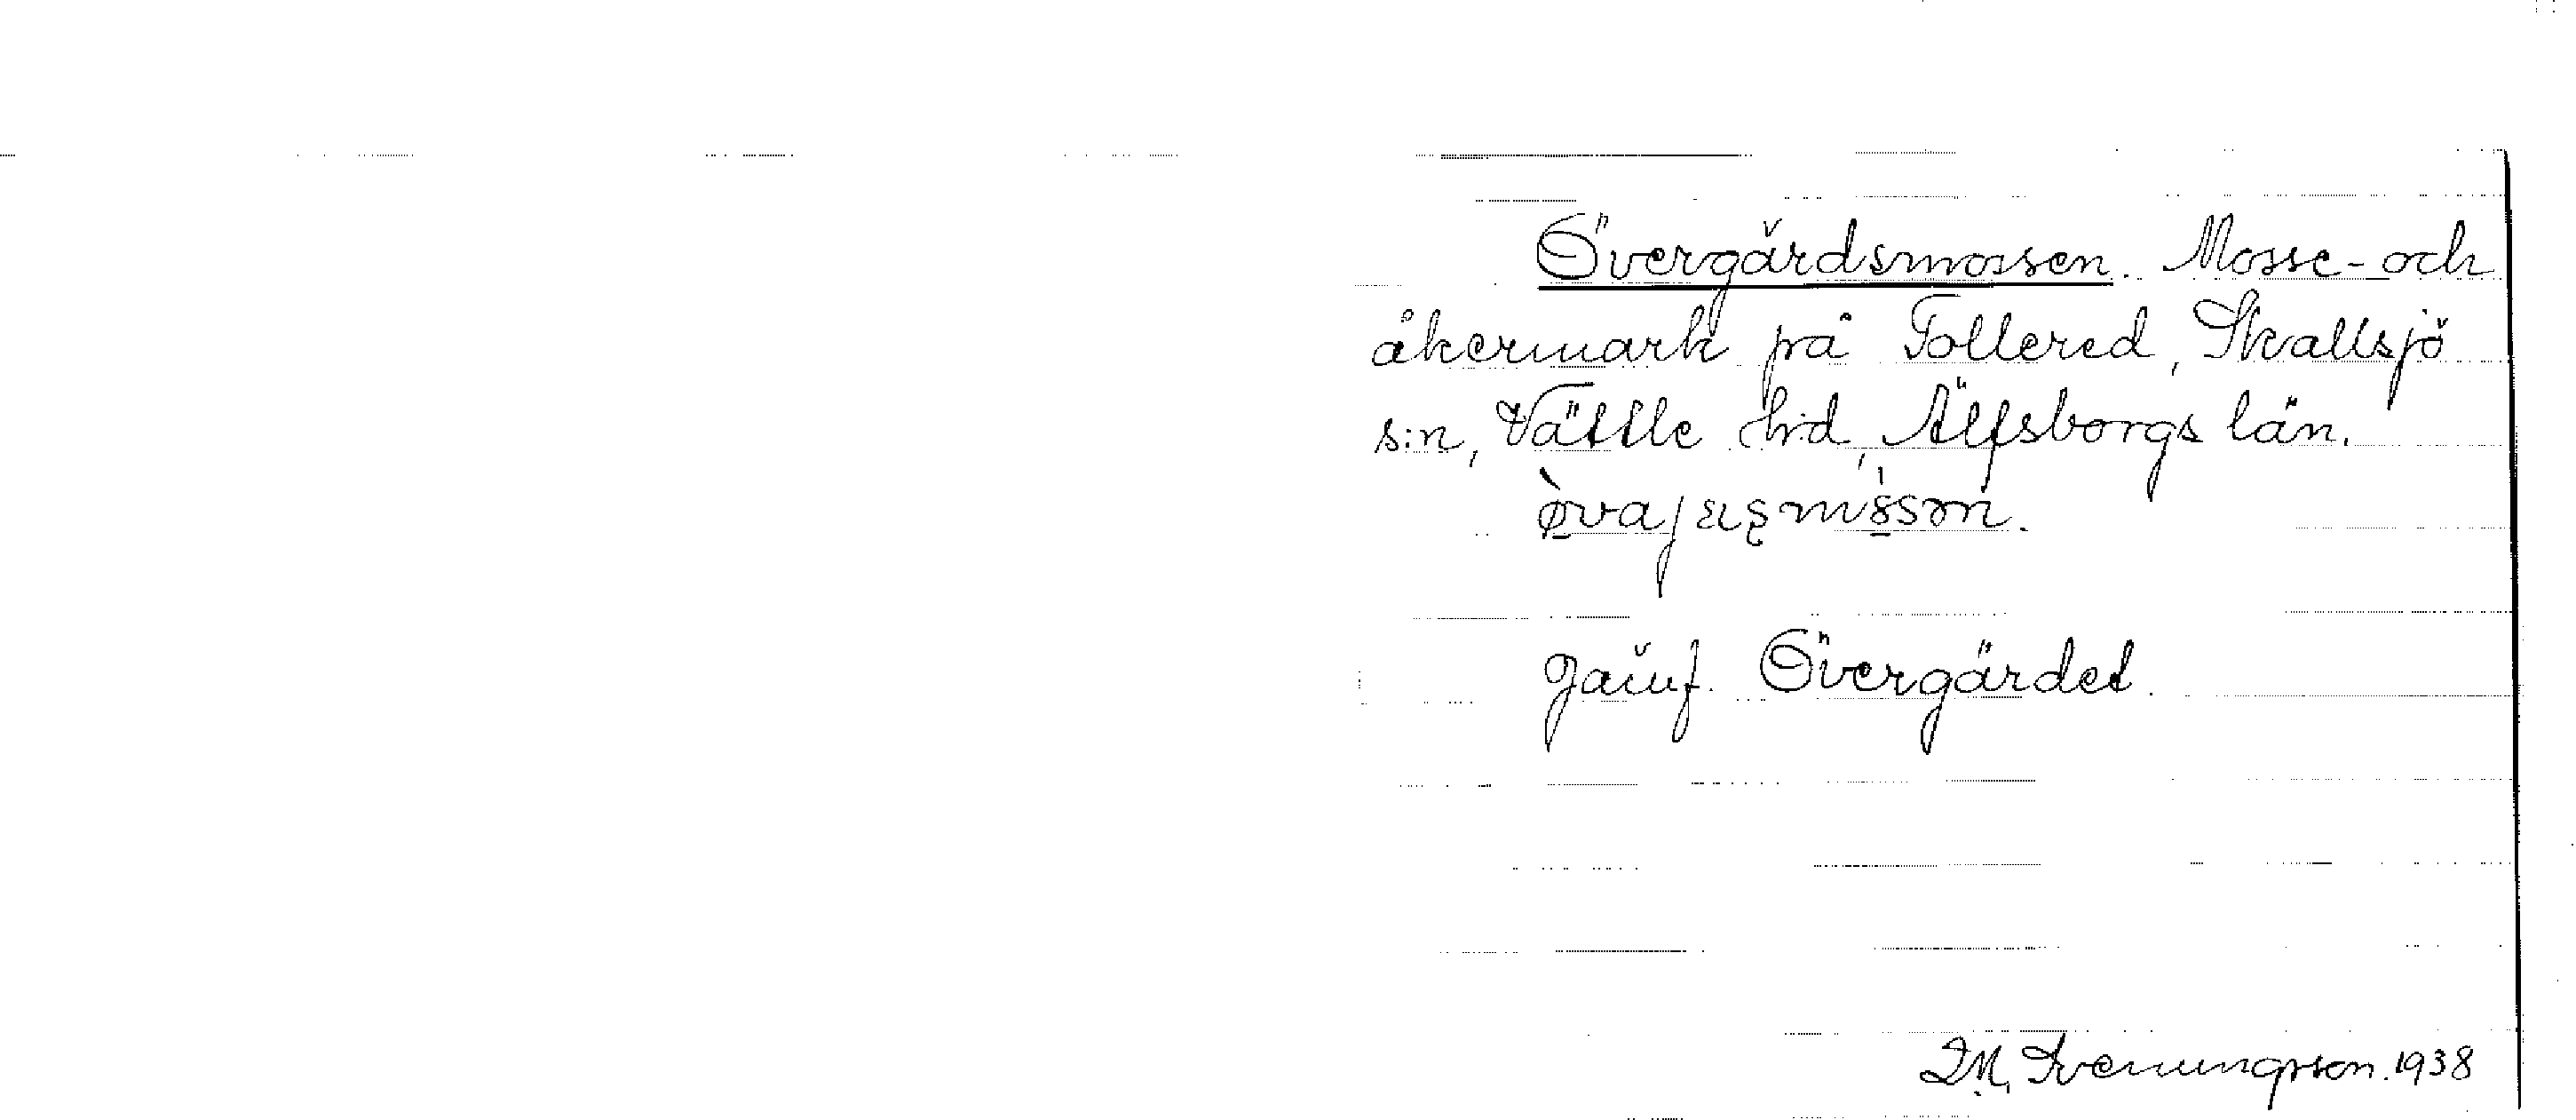 Övergärdsmossen. Mosse- och
åkermark på Tollered, Skallsjö
s:n, Vättle h:d, Älfsborgs län.
Jämf. Övergärdet.
Svenungsson. 1938